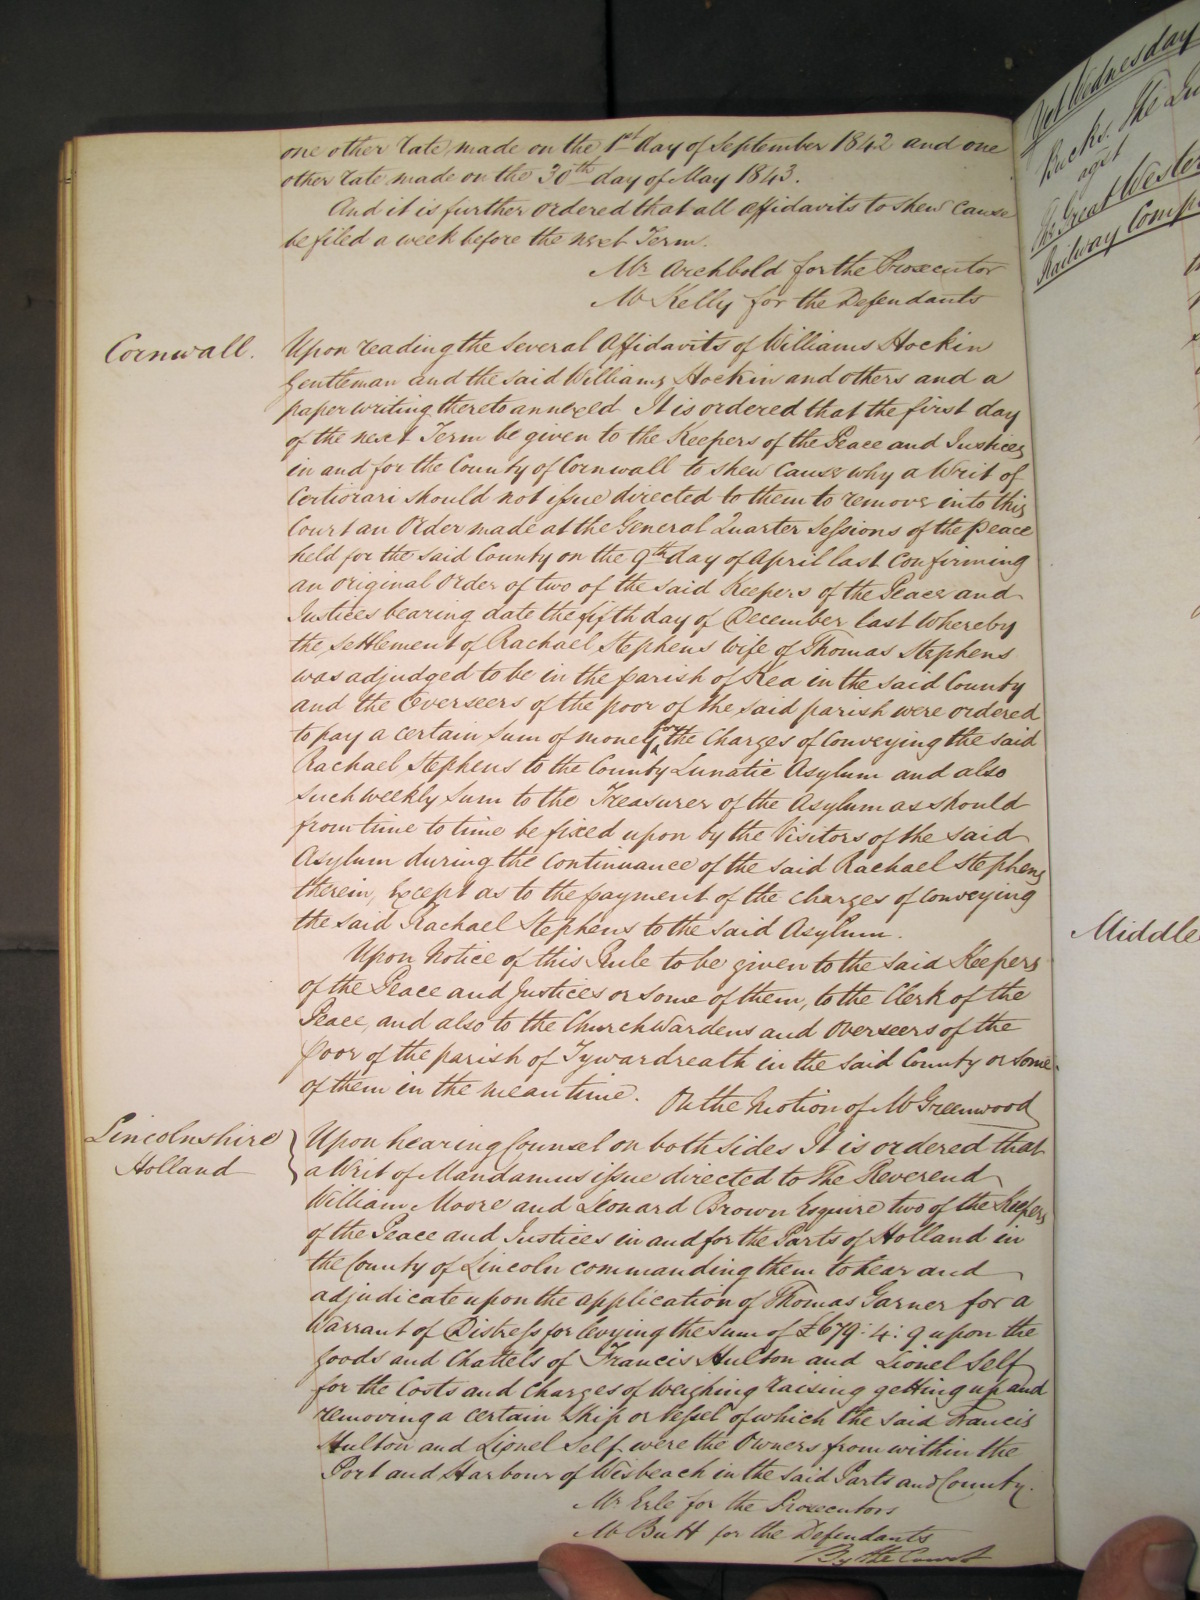 one other rate made on the 1st day of September 1842 and one
other rate made on the 30th day of May 1843.
And it is further ordered that all affidavits to shew cause
be filed a week before the next Term.
Mr Archbold for the Prosecutor
Mr Kelly for the Defendants
Cornwall.
Upon reading the several Affidavits of Williams Hockin
Gentleman and the said Williams Hockin and others and a
paper writing thereto annexed It is ordered that the first day
of the next Term be given to the Keepers of the Peace and Justices
in and for the County of Cornwall to shew cause why a Writ of
Certiorari should not issue directed to them to remove into this
Court an Order made at the General Quarter Sessions of the Peace
held for the said County on the 9th day of April last confirming
an original Order of two of the said Keepers of the Peace and
Justices bearing date the fifth day of December last whereby
the settlement of Rachael Stephens wife of Thomas Stephens
was adjudged to be in the parish of Kea in the said County
and the Overseers of the poor of the said parish were ordered
to pay a certain sum of money for the charges of conveying the said
Rachael Stephens to the County Lunatic Asylum and also
such weekly sum to the Treasurer of the Asylum as should
from time to time be fixed upon by the Visitors of the said
Asylum during the continuance of the said Rachael Stephens
therein, except as to the payment of the charges of conveying
the said Rachael Stephens to the said Asylum.
Upon Notice of this Rule to be given to the said Keepers
of the Peace and Justices or some of them, to the Clerk of the
Peace, and also to the Churchwardens and Overseers of the
Poor of the parish of Tywardreath in the said County or some
of them in the mean time.
On the Motion of Mr Greenwood
Lincolnshire
Holland
Upon hearing Counsel on both sides It is ordered that
a Writ of Mandamus issue directed to The Reverend
William Moore and Leonard Brown Esquire two of the Keepers
of the Peace and Justices in and for the Parts of Holland in
the County of Lincoln commanding them to hear and
adjudicate upon the application of Thomas Garner for a
Warrant of Distress for levying the sum of £679: 4: 9 upon the
goods and Chattels of Francis Hulton and Lionel Self
for the Costs and Charges of weighing raising getting up and
removing a certain Ship or Vessel of which the said Francis
Hulton and Lionel Self were the Owners from within the
Port and Harbour of Wisbeach in the said Parts and County.
Mr Erle for the Prosecutors
Mr Butt for the Defendants
By the Court
Yet Wednesday
Bucks. The
agst
The Great Wester
Railway Comp
Middle